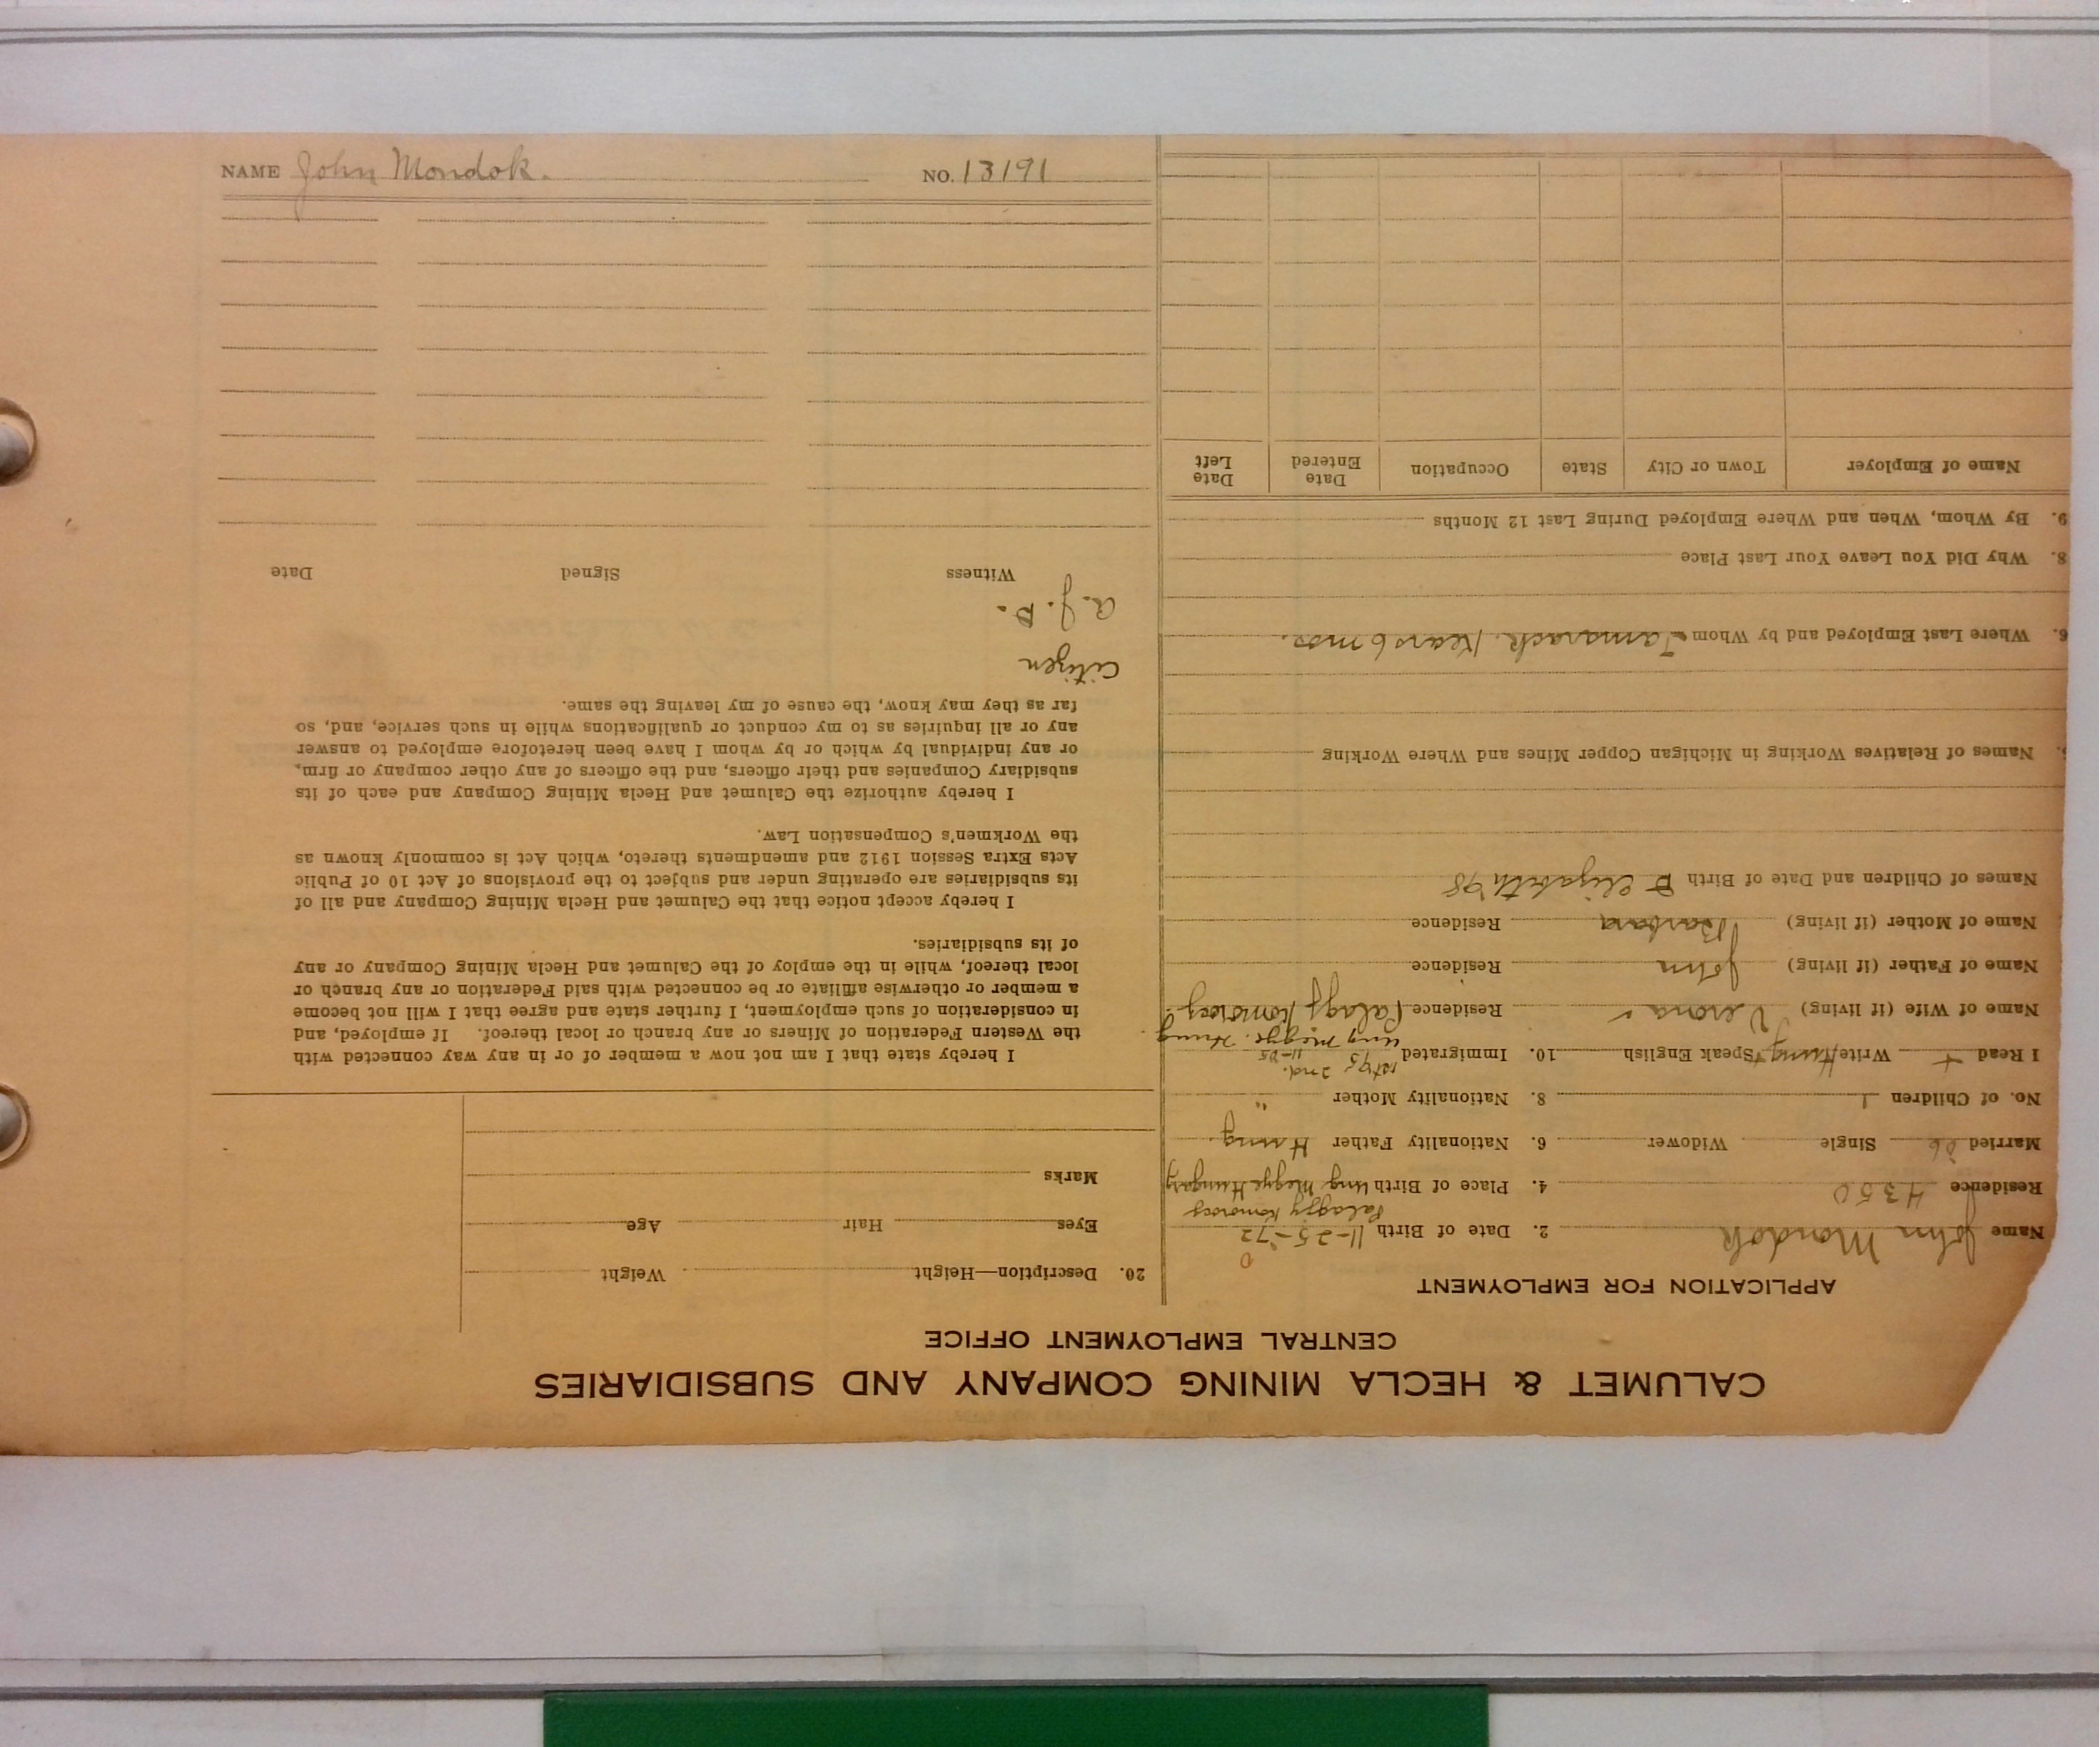 CALUMET & HECLA MINING COMPANY AND SUBSIDIARIES
CENTRAL EMPLOYMENT OFFICE
APPLICATION FOR EMPLOYMENT
Name John Mondok 2. Date of Birth 11-25-'72
Palagy Komorocz
Residence 4350 4. Place of Birth Ung Megye Hungary
Married Single Widower 6. Nationality Father Hung.
No. of Children 1 8. Nationality Mother "
1st '95 2nd. 11-05
I Read + Write Hung + Speak English 10. Immigrated
Ung Megye. Hung
Name of Wife (if living) Verona Residence Palagy Komorocz
Name of Father (if living) John Residence
Name of Mother (if living) Barbara Residence
Names of Children and Date of Birth Elizabeth '98
Names of Relatives Working in Michigan Copper Mines and Where Working
6. Where Last Employed and by Whom Tamarack. Kears 6 mos.
8. Why Did You Leave Your Last Place
9. By Whom, When and Where Employed During Last 12 Months
Name of Employer Town or City State Occupation Date Entered Date Left
20. Description—Height Weight
Eyes Hair Age
Marks
I hereby state that I am not now a member of or in any way connected with
the Western Federation of Miners or any branch or local thereof. If employed, and
in consideration of such employment, I further state and agree that I will not become
a member or otherwise affiliate or be connected with said Federation or any branch or
local thereof, while in the employ of the Calumet and Hecla Mining Company or any
of its subsidiaries.
I hereby accept notice that the Calumet and Hecla Mining Company and all of
its subsidiaries are operating under and subject to the provisions of Act 10 of Public
Acts Extra Session 1912 and amendments thereto, which Act is commonly known as
the Workmen's Compensation Law.
I hereby authorize the Calumet and Hecla Mining Company and each of its
subsidiary Companies and their officers, and the officers of any other company or firm,
or any individual by which or by whom I have been heretofore employed to answer
any or all inquiries as to my conduct or qualifications while in such service, and, so
far as they may know, the cause of my leaving the same.
Citizen
Witness Signed Date
NAME John Mondok. NO. 13191